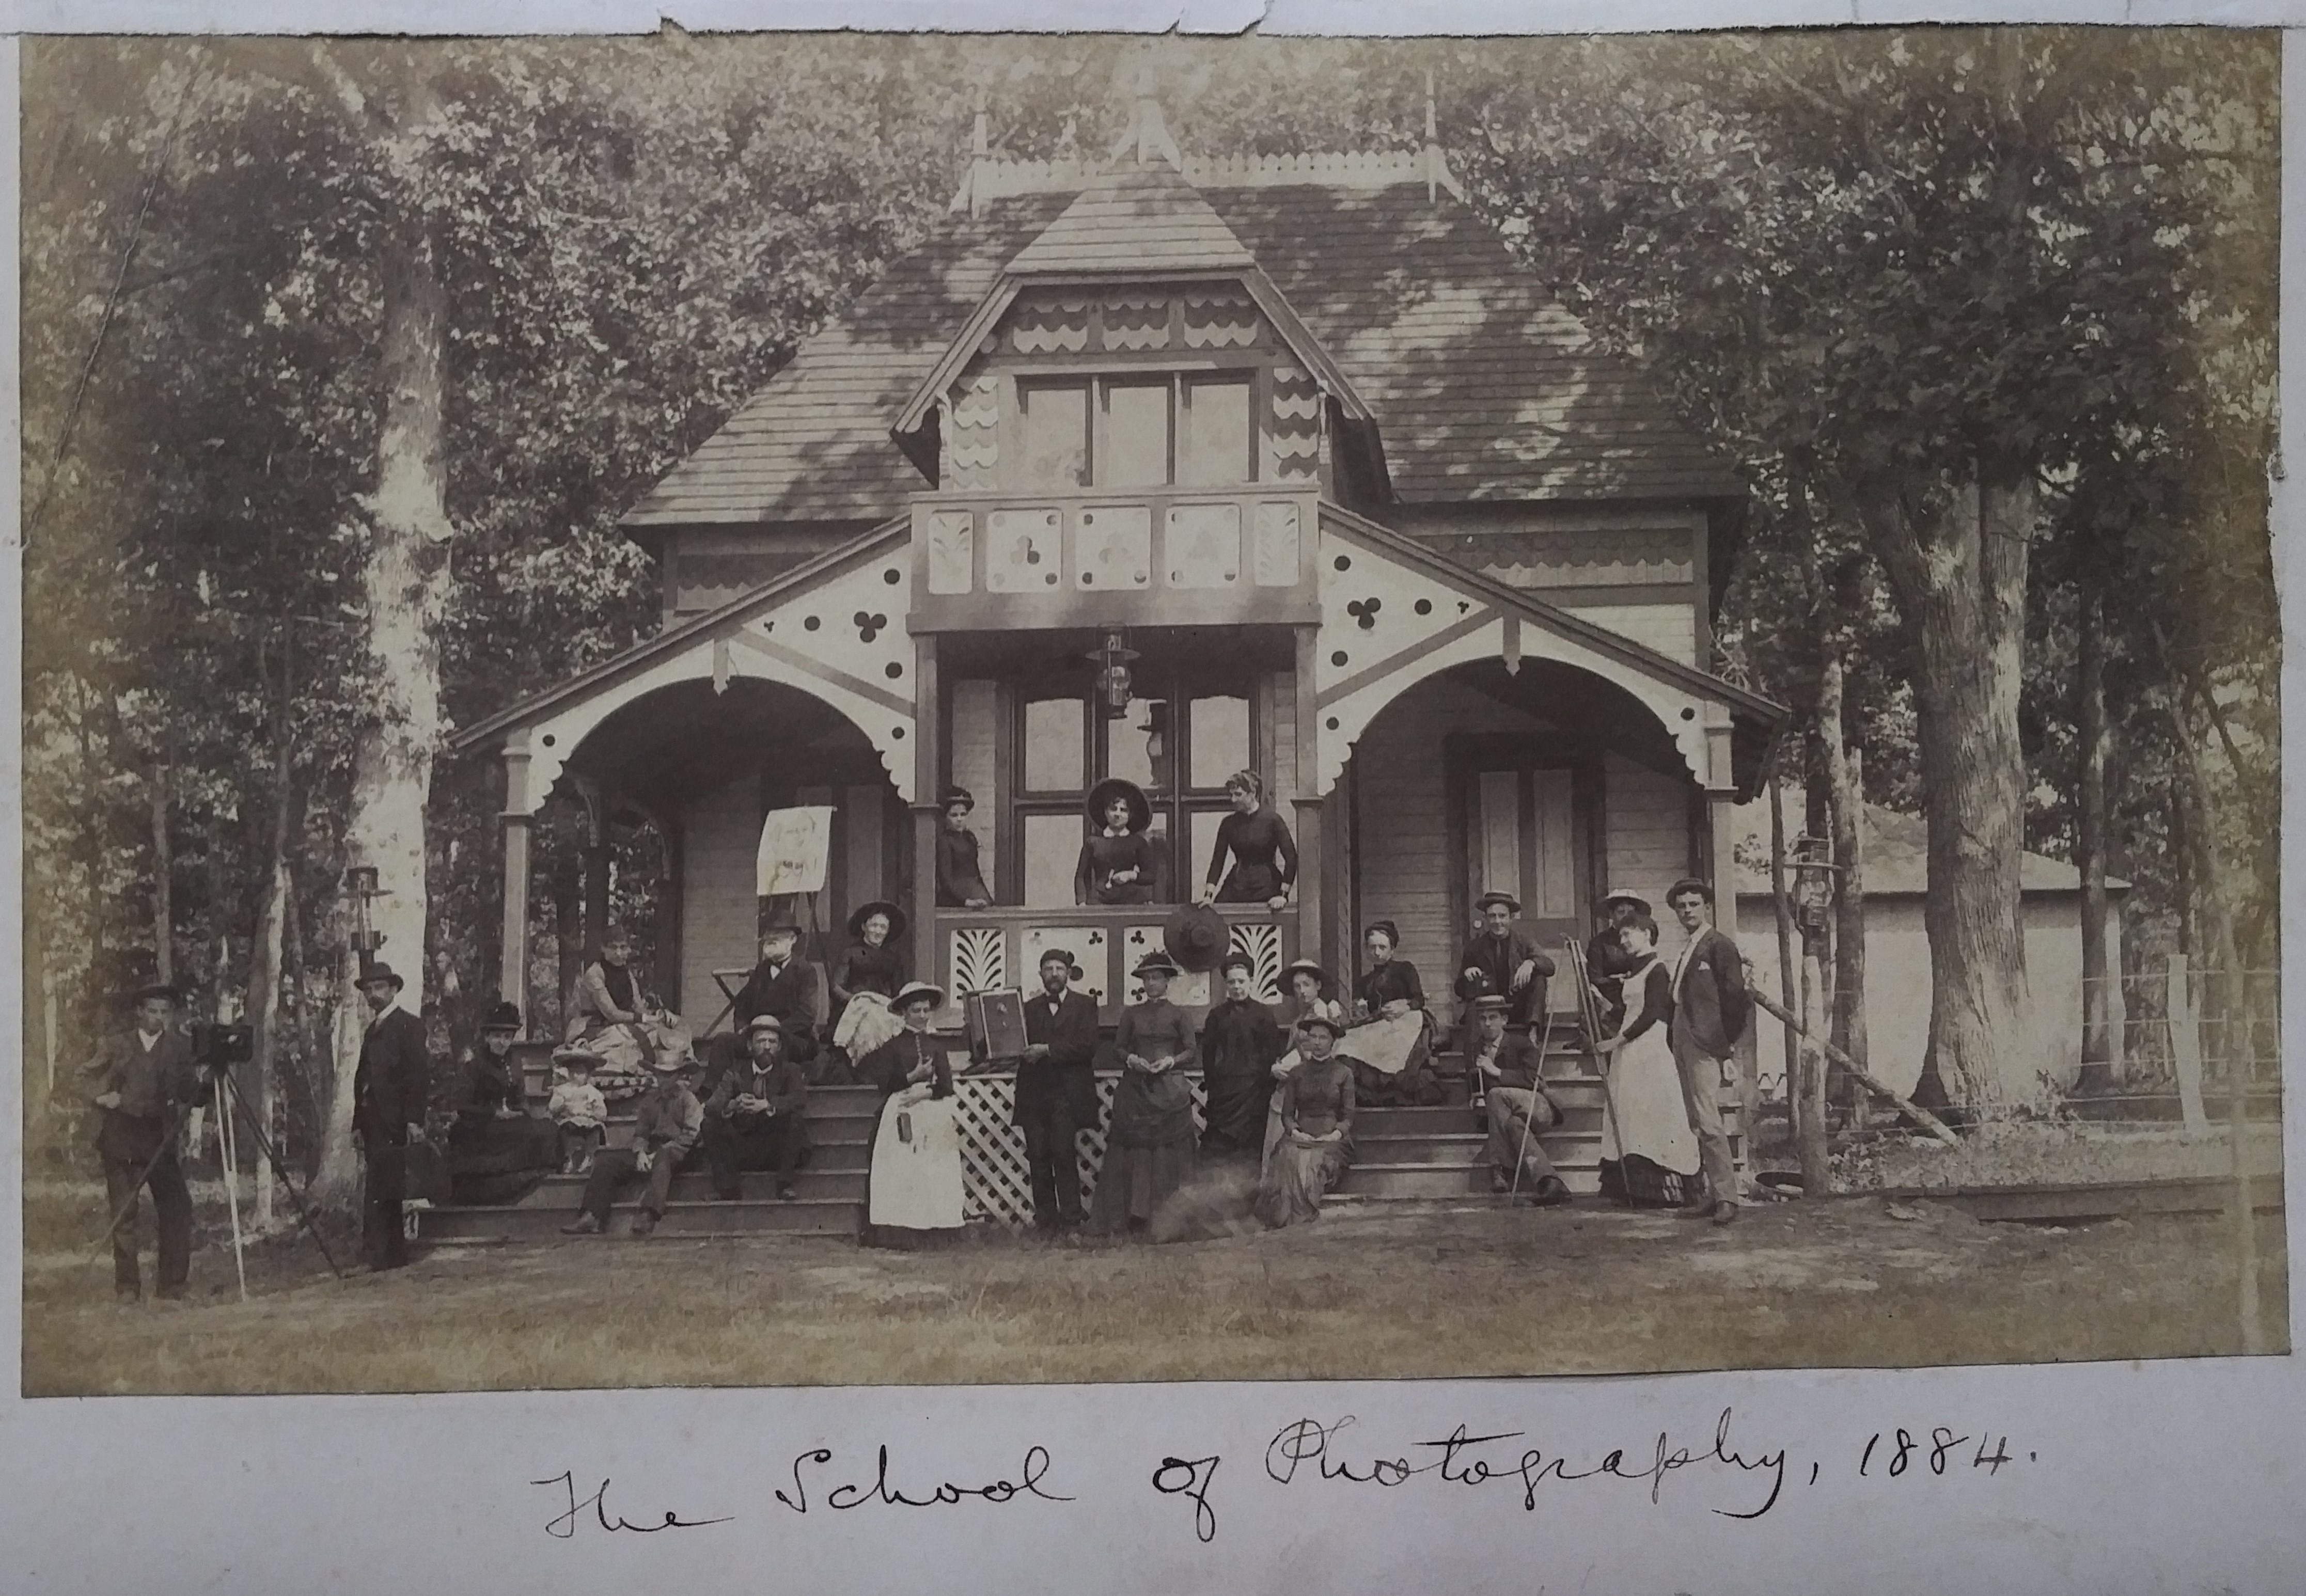 The School of Photography, 1884.